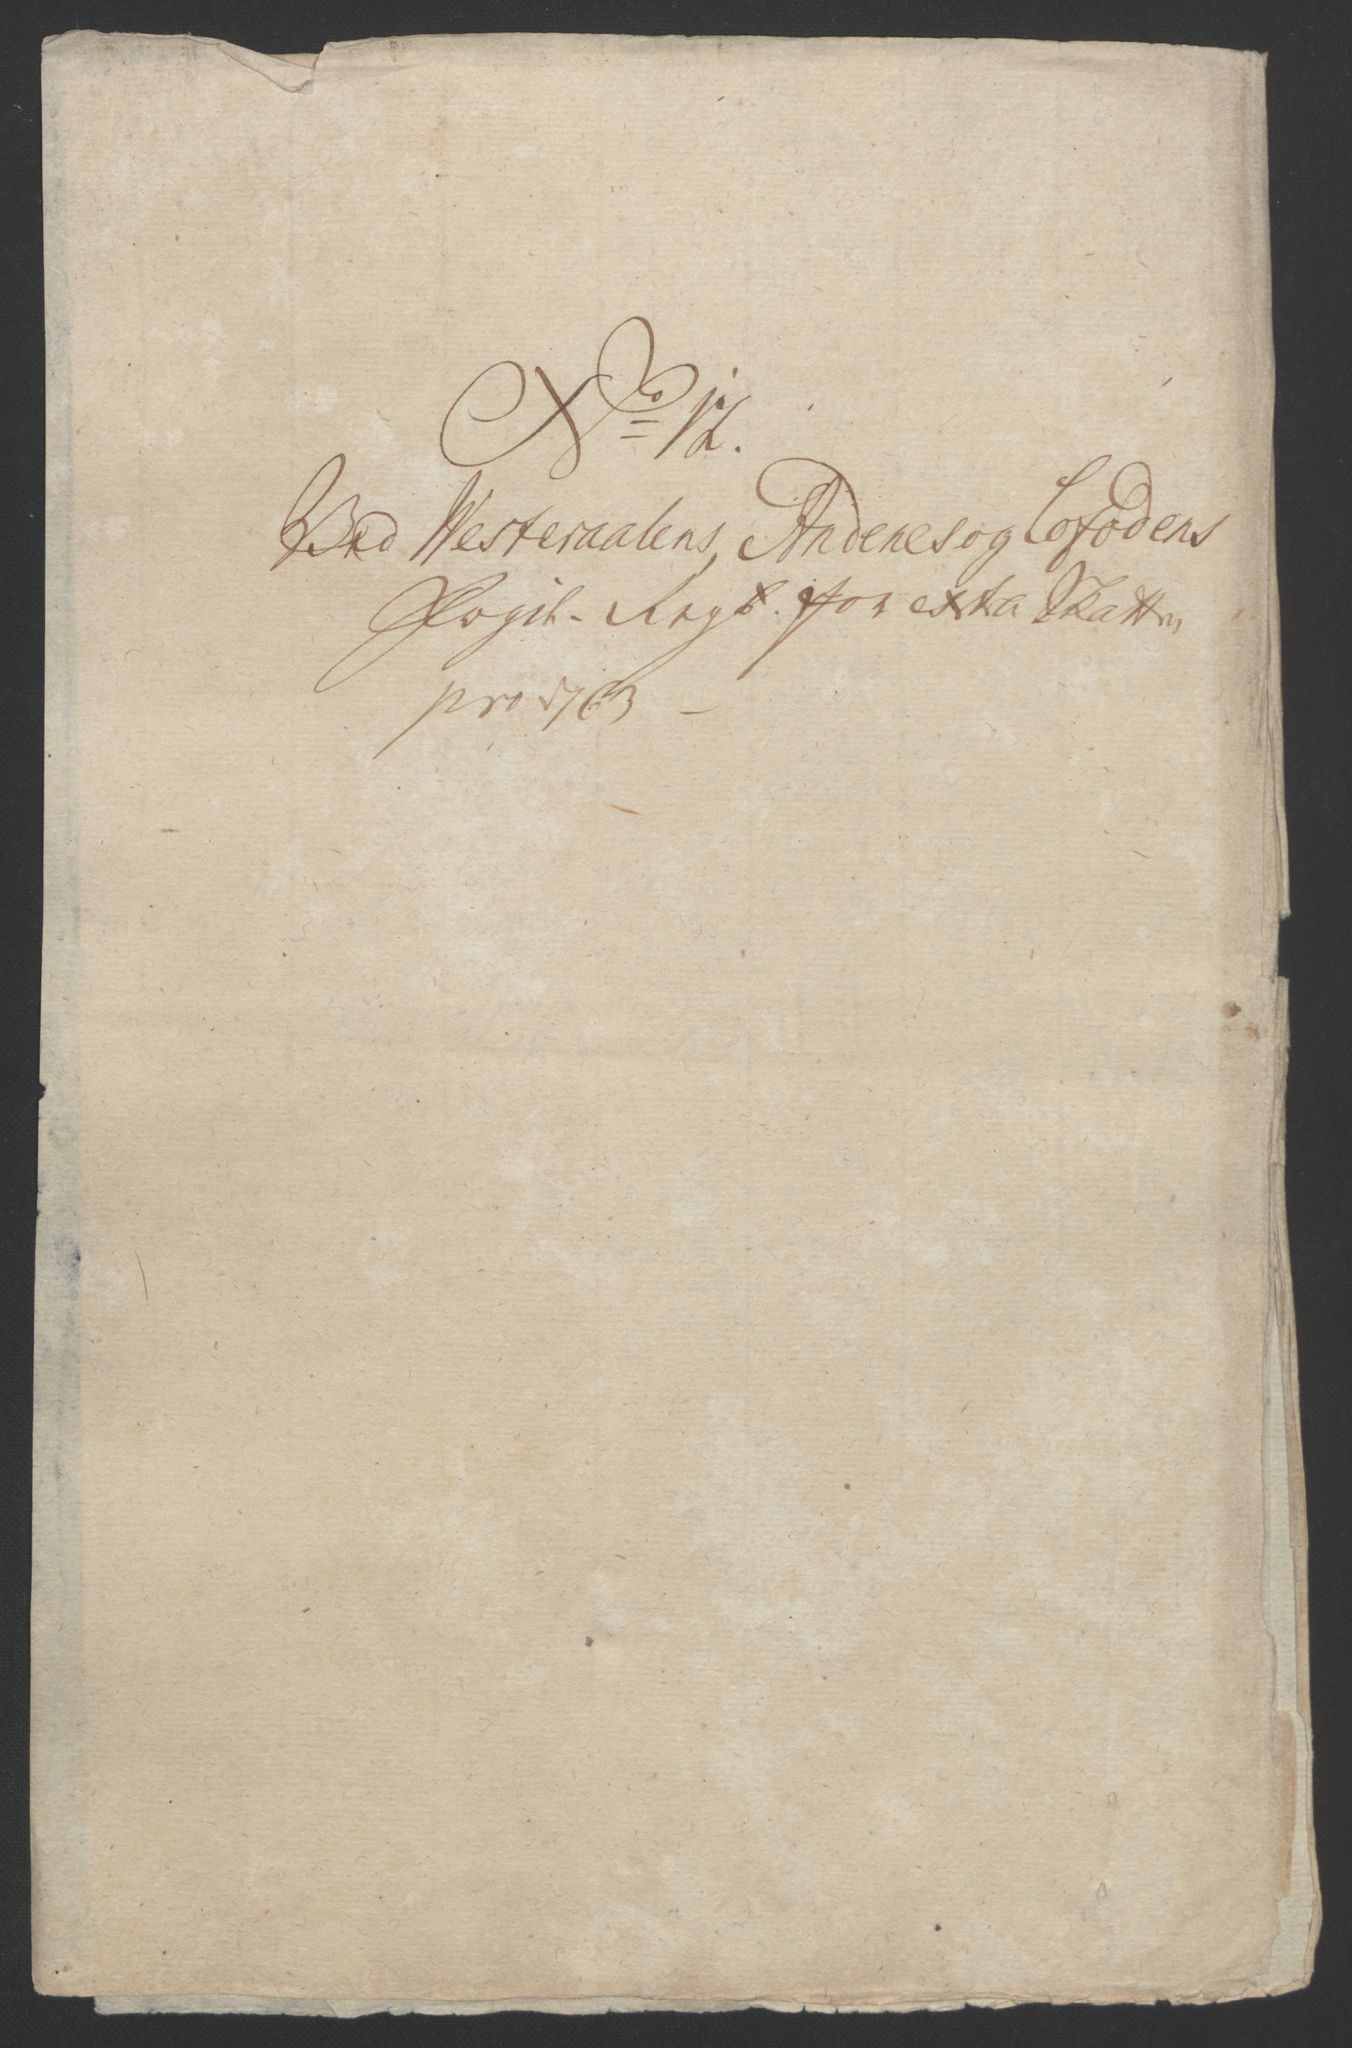 No 12.
Ved Westeraalens, Andenes og Lofodens
Fogd. Regsk. for exta Skatten
pro 1763